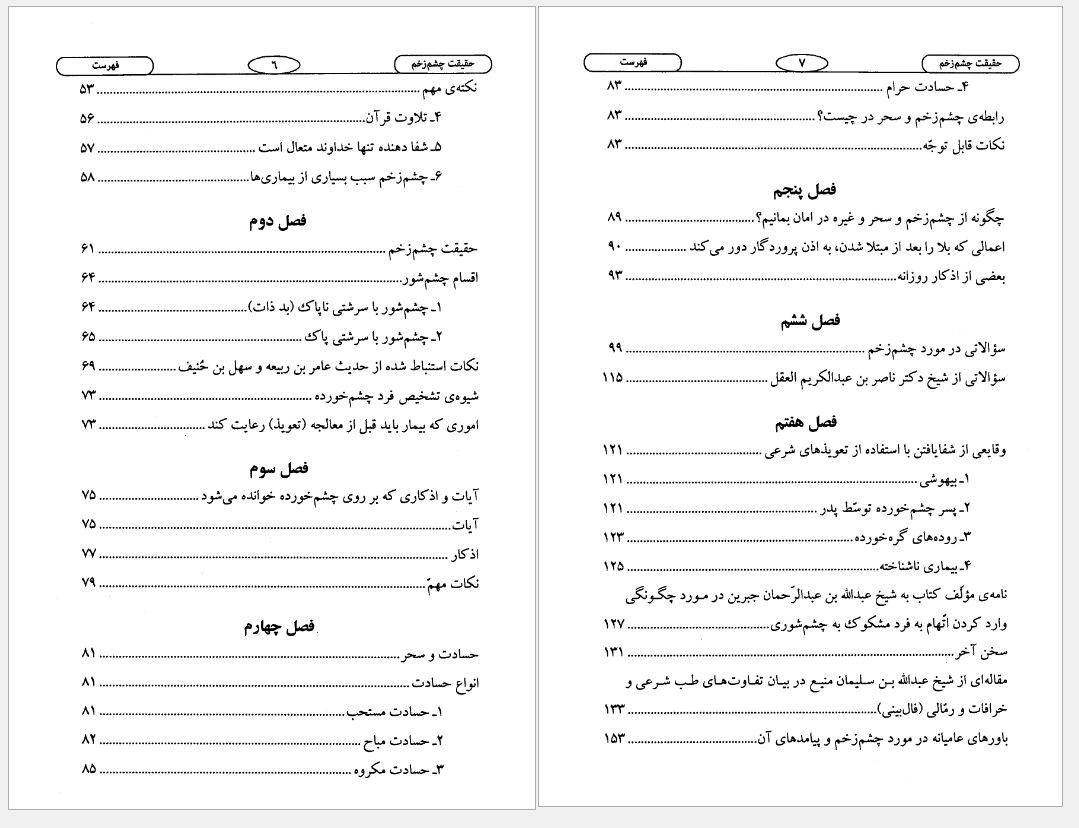 حقیقت چشم‌زخم ٦ فهرست
نکته‌ی مهم ........ ۵۳
۴ـ تلاوت قرآن ........ ۵۶
۵ـ شفا دهنده تنها خداوند متعال است ........ ۵۷
۶ـ چشم‌زخم سبب بسیاری از بیماری‌ها ........ ۵۸
فصل دوم
حقیقت چشم‌زخم ........ ۶۱
اقسام چشم‌شور ........ ۶۴
۱ـ چشم‌شور با سرشتی ناپاک (بد ذات) ........ ۶۴
۲ـ چشم‌شور با سرشتی پاک ........ ۶۵
نکات استنباط شده از حدیث عامر بن ربیعه و سهل بن حُنیف ........ ۶۹
شیوه‌ی تشخیص فرد چشم‌خورده ........ ۷۳
اموری که بیمار باید قبل از معالجه (تعویذ) رعایت کند ........ ۷۳
فصل سوم
آیات و اذکاری که بر روی چشم‌خورده خوانده می‌شود ........ ۷۵
آیات ........ ۷۵
اذکار ........ ۷۷
نکات مهمّ ........ ۷۹
فصل چهارم
حسادت و سحر ........ ۸۱
انواع حسادت ........ ۸۱
۱ـ حسادت مستحب ........ ۸۱
۲ـ حسادت مباح ........ ۸۲
۳ـ حسادت مکروه ........ ۸۵
حقیقت چشم‌زخم ۷ فهرست
۴ـ حسادت حرام ........ ۸۳
رابطه‌ی چشم‌زخم و سحر در چیست؟ ........ ۸۳
نکات قابل توجّه ........ ۸۳
فصل پنجم
چگونه از چشم‌زخم و سحر و غیره در امان بمانیم؟ ........ ۸۹
اعمالی که بلا را بعد از مبتلا شدن، به اذن پروردگار دور می‌کند ........ ۹۰
بعضی از اذکار روزانه ........ ۹۳
فصل ششم
سؤالاتی در مورد چشم‌زخم ........ ۹۹
سؤالاتی از شیخ دکتر ناصر بن عبدالکریم العقل ........ ۱۱۵
فصل هفتم
وقایعی از شفایافتن با استفاده از تعویذهای شرعی ........ ۱۲۱
۱ـ بیهوشی ........ ۱۲۱
۲ـ پسر چشم‌خورده توسّط پدر ........ ۱۲۱
۳ـ روده‌های گره‌خورده ........ ۱۲۳
۴ـ بیماری ناشناخته ........ ۱۲۵
نامه‌ی مؤلّف کتاب به شیخ عبدالله بن عبدالرّحمان جبرین در مورد چگونگی
وارد کردن اتّهام به فرد مشکوک به چشم‌شوری ........ ۱۲۷
سخن آخر ........ ۱۳۱
مقاله‌ای از شیخ عبدالله بن سلیمان منیع در بیان تفاوت‌های طب شرعی و
خرافات و رمّالی (فال‌بینی) ........ ۱۳۳
باورهای عامیانه در مورد چشم‌زخم و پیامدهای آن ........ ۱۵۳